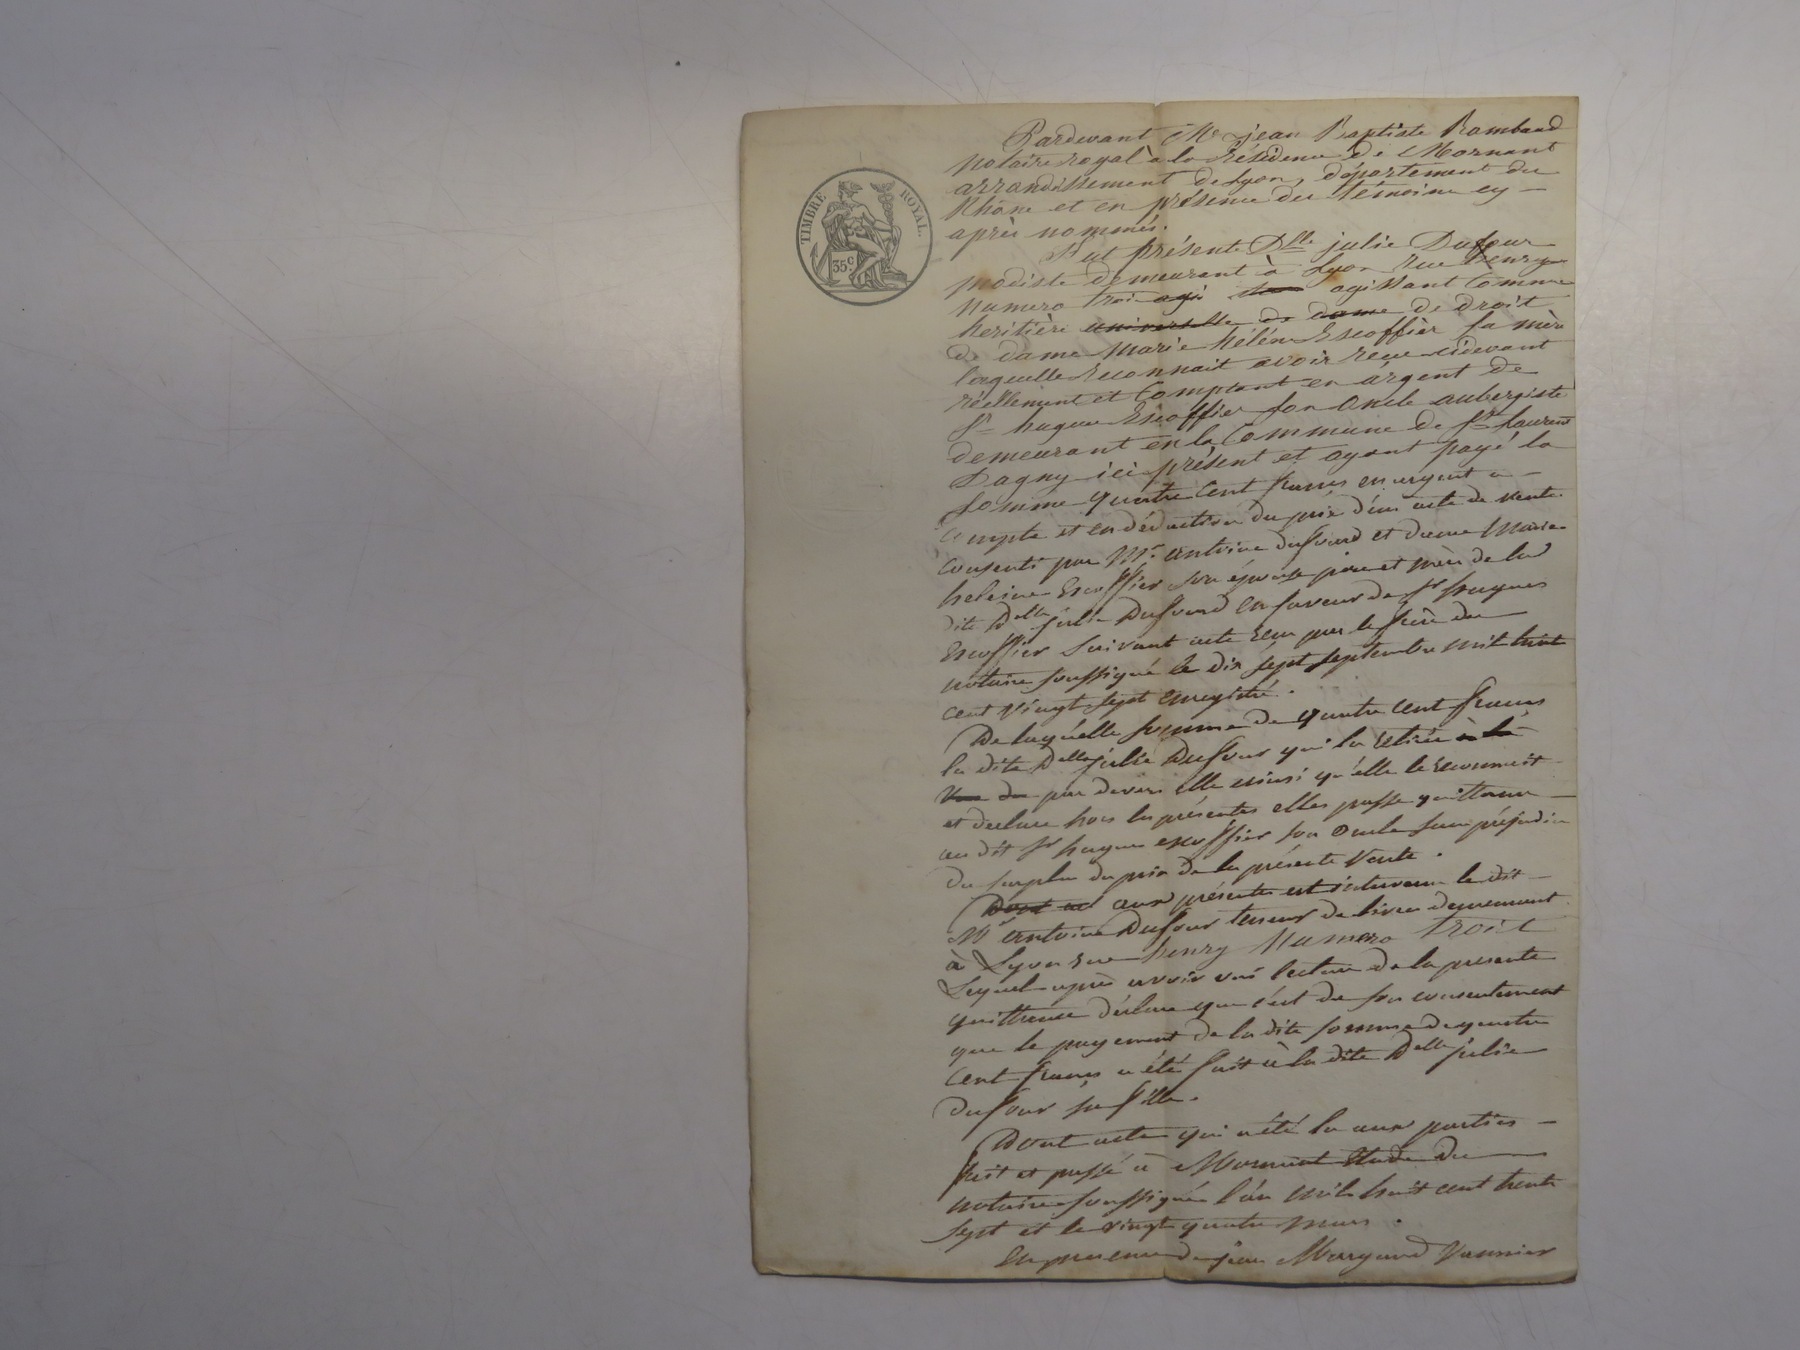 TIMBRE ROYAL.
35 c.
Pardevant Me jean Baptiste Rambaud
notaire royal à la Résidence de Mornant
arrandissement de Lyon, département du
Rhône et en présence des témoins cy -
après nommés.
Fut présente Dlle julie Dufour
modiste demeurant à Lyon rue henry
numero trois agissant comme
heritière universelle de dame de droit
de dame Marie héléne Escoffier sa mère
laquelle reconnait avoir reçu cidevant
réellement et comptant en argent de
Sr hugues Escoffier son oncle aubergiste
demeurant en la Commune de St Laurent
Dagny ici présent et ayant payé la
somme quatre cent francs en argent a -
compte et en déduction du prix d'un acte de vente
consenti par Mr antoine dufourd et dame Marie
heleine Escoffier son épouse pere et mère de la
dite Delle julie Dufourd en faveur de Sr hugues
Escoffier Suivant acte reçu par le frère du
notaire soussigné le dix sept septembre mil huit
cent vingt sept enregistré.
De laquelle somme de quatre cent francs
la dite Delle julie Dufour qui la retirée à la
vue du par devers elle ainsi qu'elle le reconnait
et declare hors les présentes elles passe quittance -
au dit Sr hugues escoffier son oncle sans préjudice
du surplus du prix de la présente Vente.
Dont act aux présentes est intervenu le dit -
Mr antoine Dufour teneur de livres demeurant
à Lyon rue henry Numero trois
Lequel après avoir eus lecture de la presente
quittance déclare que c'est de son consentement
que le payement de la dite somme de quatre
cent francs a été fait à la dite Delle julie
dufour sa fille.
Dont acte qui a été lu aux parties -
fait et passé à Mornant étude du
notaire soussigné l'an mil huit cent trente
sept et le vingt quatre mars.
En presence de jean Margand Vannier